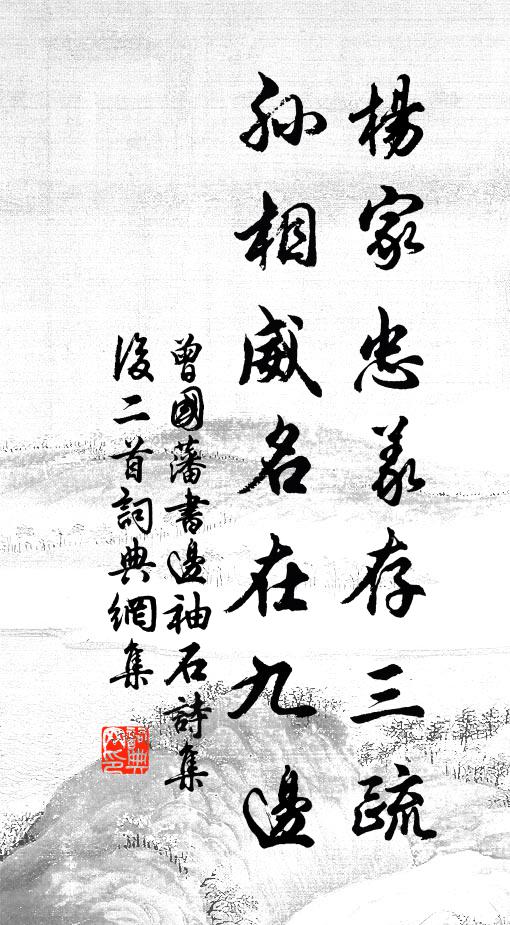 楊家忠義存三疏
孫相威名在九邊
曾國藩書邊袖石詩集
後二首詞典網集